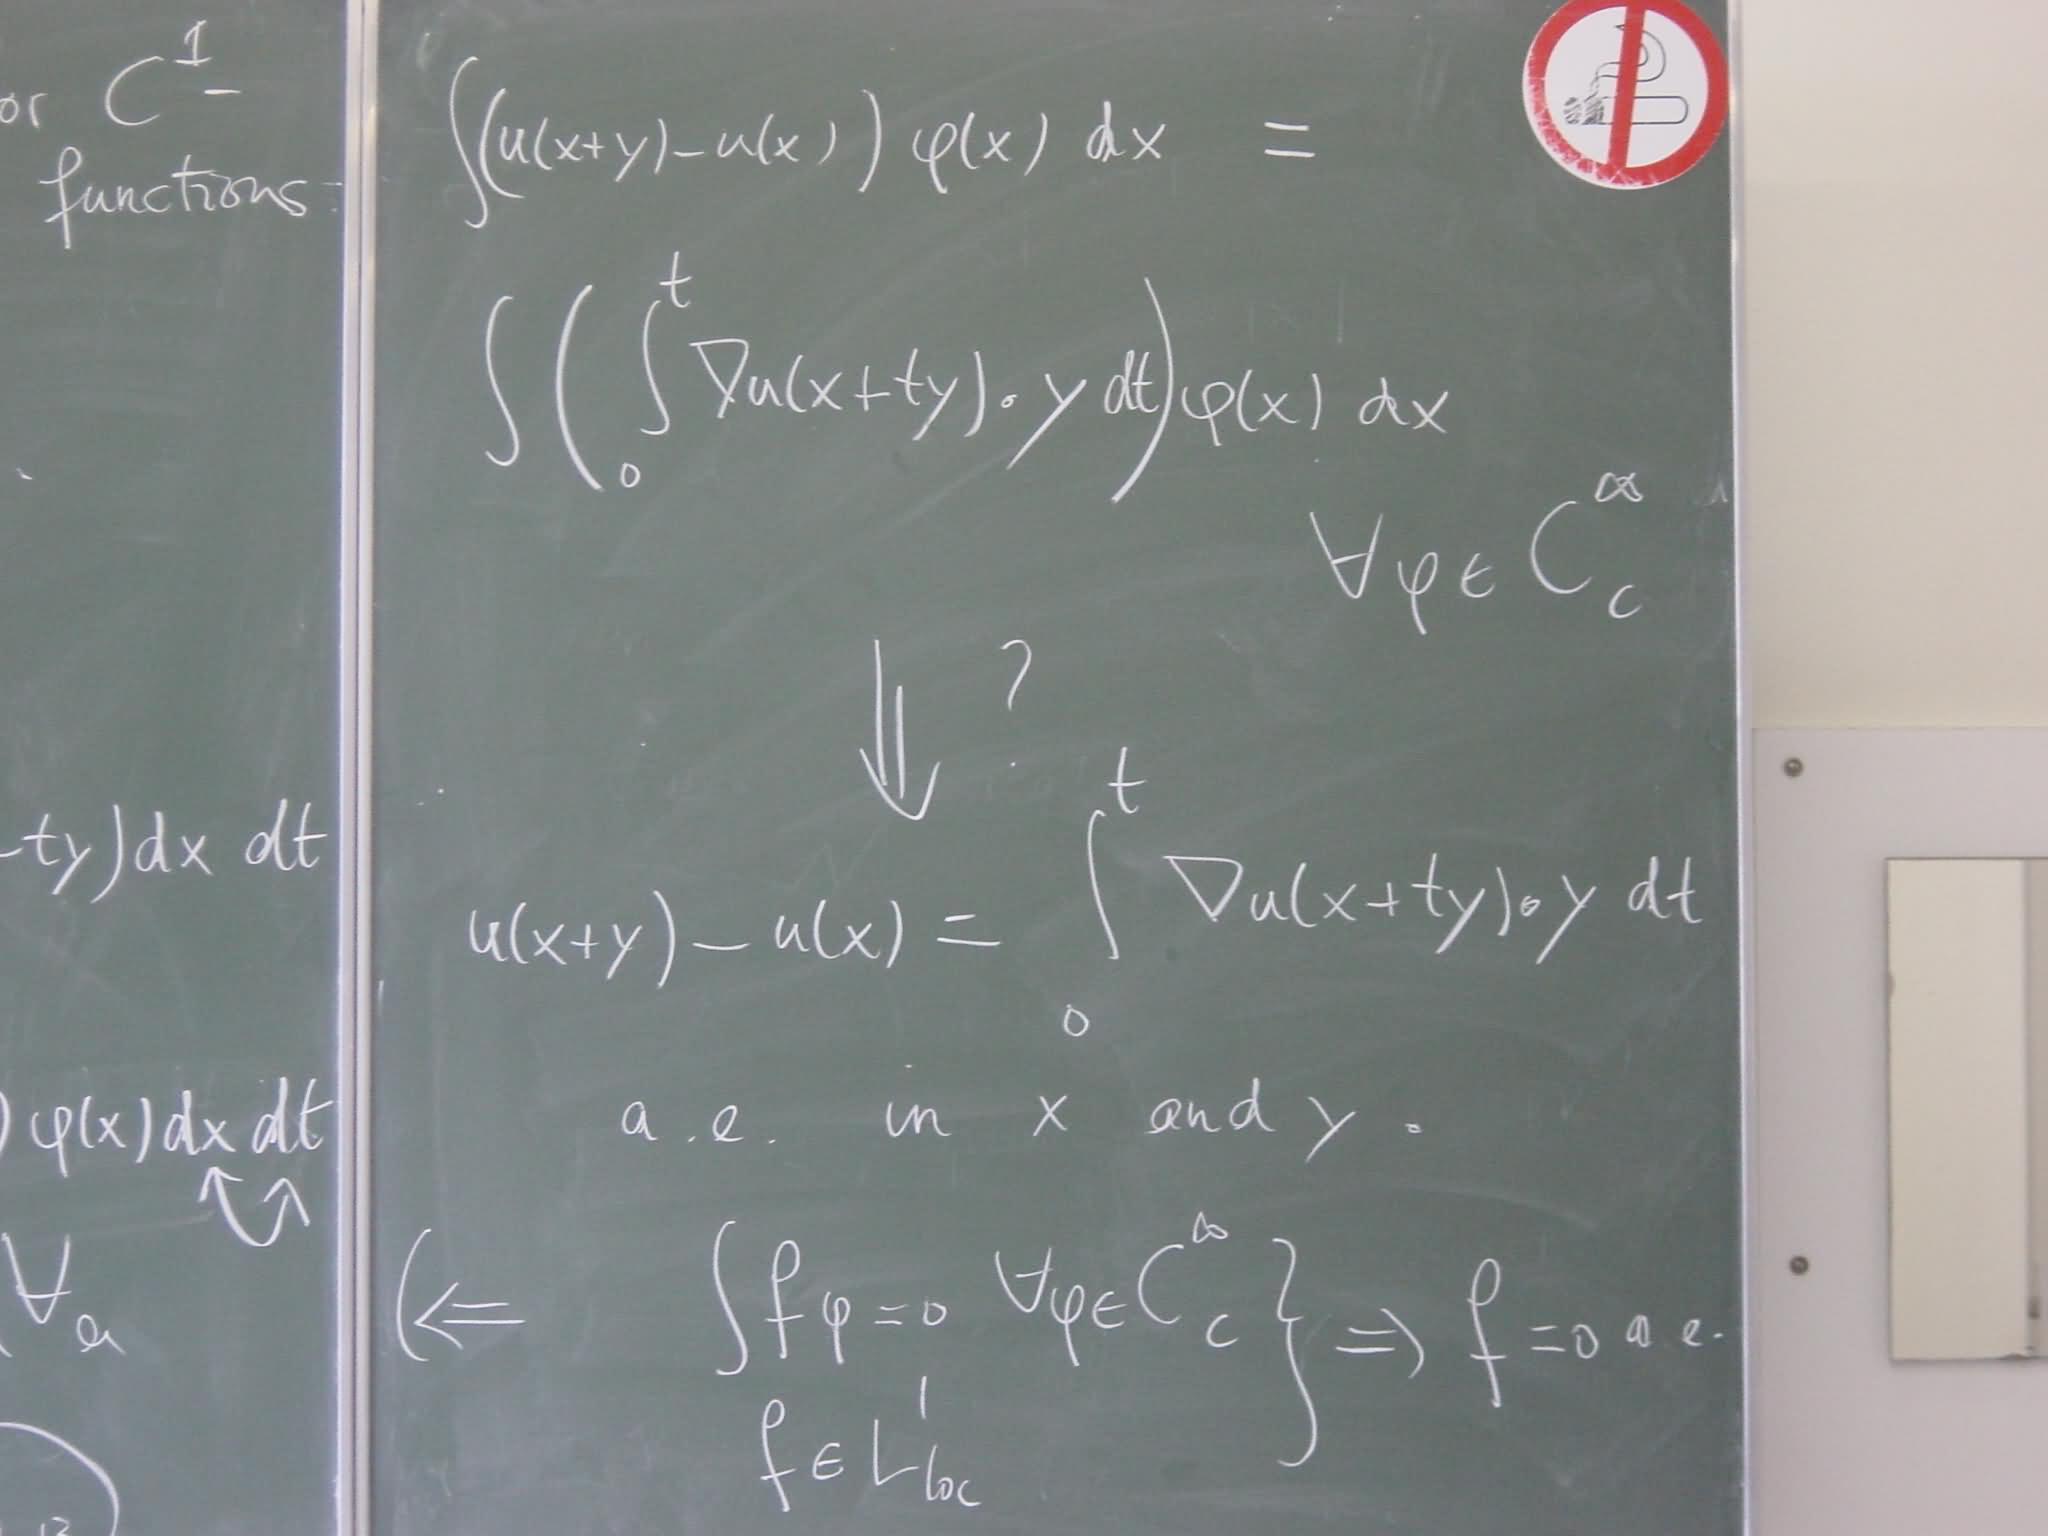 or C¹-
functions
-ty)dx dt
) φ(x)dx dt
∀a
∫(u(x+y)-u(x)) φ(x) dx =
∫(∫₀ᵗ ∇u(x+ty)·y dt)φ(x) dx
∀φ∈ C_c^∞
⇓ ?
u(x+y)-u(x) = ∫₀ᵗ ∇u(x+ty)·y dt
a.e. in x and y.
(⇐ ∫fφ=0 ∀φ∈C_c^∞ } ⇒ f=0 a.e.
f∈L¹_loc